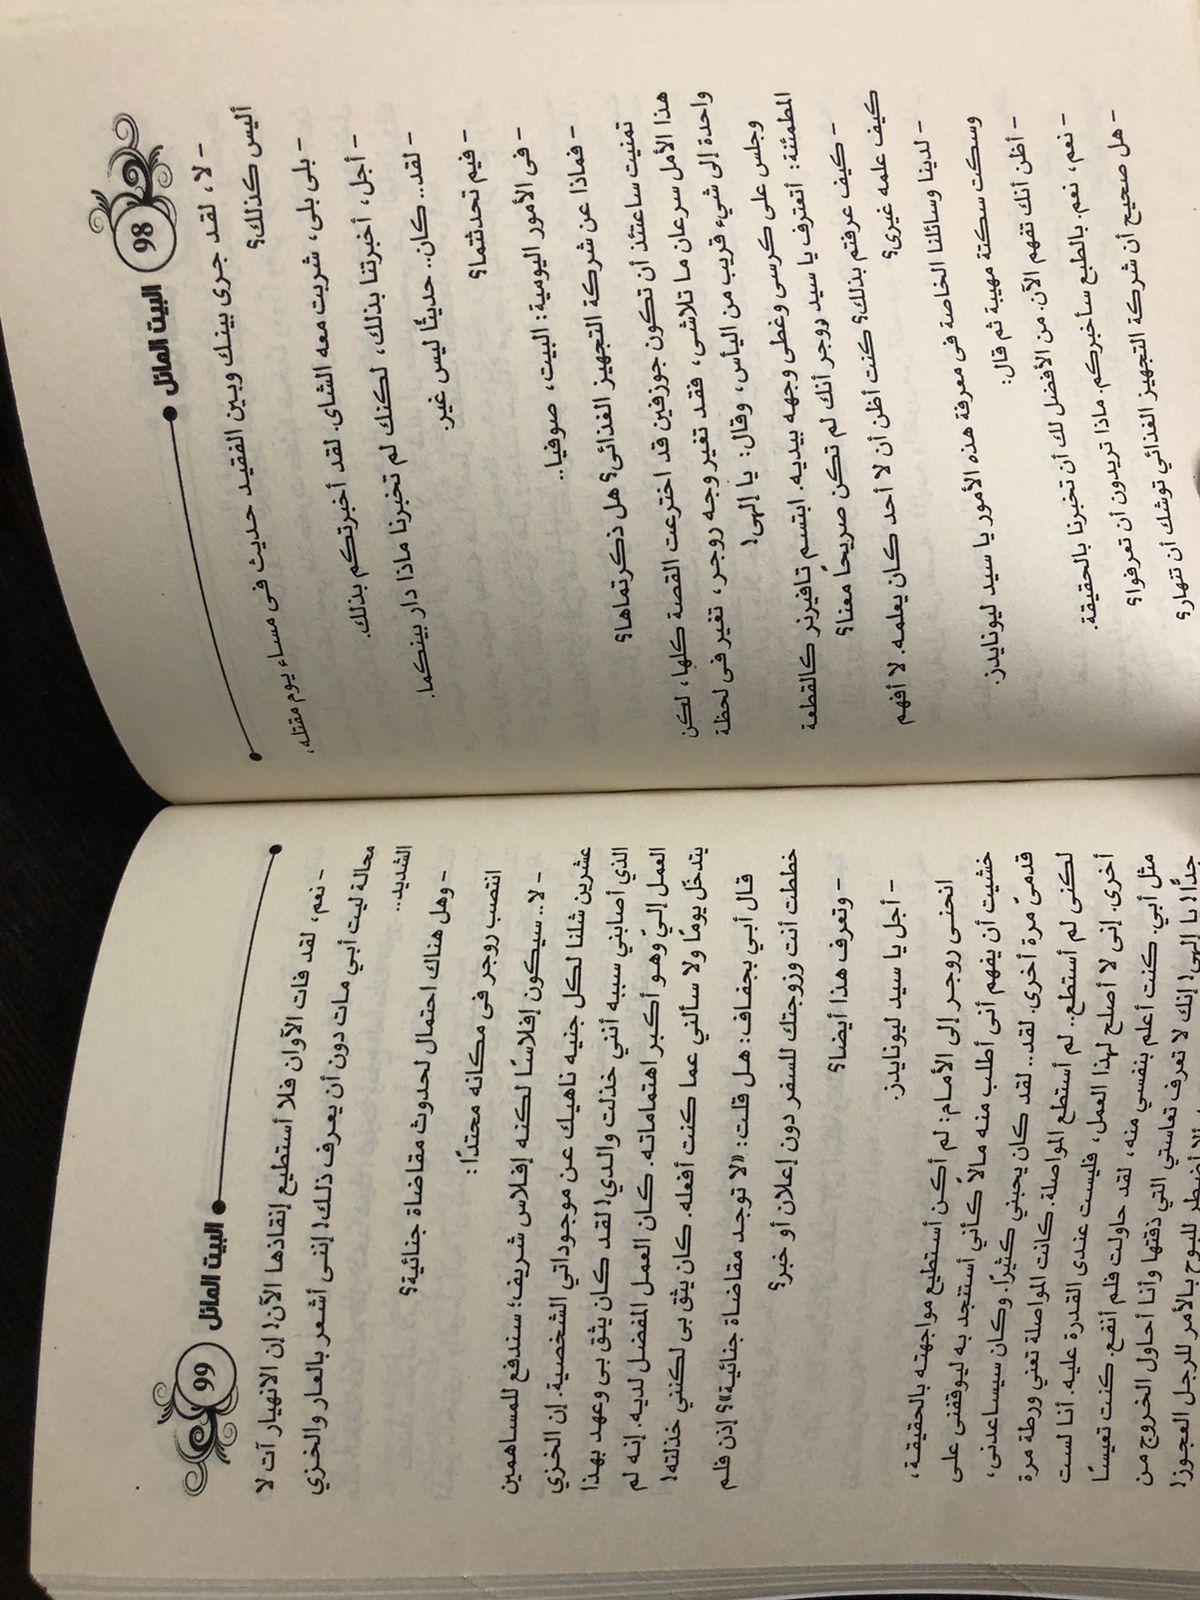 البيت المائل
98
- لا، لقد جرى بينك وبين الفقيد حديث فى مساء يوم مقتله،
أليس كذلك؟
- بلى بلى، شربت معه الشاى. لقد أخبرتكم بذلك.
- أجل، أخبرتنا بذلك، لكنك لم تخبرنا ماذا دار بينكما.
- لقد.. كان.. حديثًا ليس غير.
- فيم تحدثتما؟
- فى الأمور اليومية: البيت، صوفيا..
- فماذا عن شركة التجهيز الغذائى؟ هل ذكرتماها؟
تمنيت ساعتئذ أن تكون جوزفين قد اخترعت القصة كلها، لكن
هذا الأمل سرعان ما تلاشى، فقد تغير وجه روجر، تغير فى لحظة
واحدة إلى شيء قريب من اليأس، وقال: يا إلهى!
وجلس على كرسى وغطى وجهه بيديه. ابتسم تافيرنر كالقطعة
المطمئنة: أتعترف يا سيد روجر أنك لم تكن صريحاً معنا؟
- كيف عرفتم بذلك؟ كنت أظن أن لا أحد كان يعلمه. لا أفهم
كيف علمه غيرى؟
- لدينا وسائلنا الخاصة فى معرفة هذه الأمور يا سيد ليونايدز.
وسكت سكتة مهيبة ثم قال:
- أظن أنك تفهم الآن. من الأفضل لك أن تخبرنا بالحقيقة.
- نعم، نعم. بالطبع سأخبركم. ماذا تريدون أن تعرفوا؟
- هل صحيح أن شركة التجهيز الغذائي توشك أن تنهار؟
البيت المائل
99
- نعم، لقد فات الآوان فلا أستطيع إنقاذها الآن! إن الانهيار آت لا
محالة ليت أبي مات دون أن يعرف ذلك! إننى أشعر بالعار والخزي
الشديد..
- وهل هناك احتمال لحدوث مقاضاة جنائية؟
انتصب روجر فى مكانه محتدًا:
- لا.. سيكون إفلاسًا لكنه إفلاس شريف؛ سندفع للمساهمين
عشرين شلنا لكل جنيه ناهيك عن موجوداتي الشخصية. إن الخزي
الذي أصابني سببه أنني خذلت والدي! لقد كان يثق بى وعهد بهذا
العمل إليّ وهو أكبر اهتماماته. كان العمل المفضل لديه. إنه لم
يتدخّل يومًا ولا سألني عما كنت أفعله. كان يثق بى لكنني خذلته!
قال أبي بجفاف: هل قلت: «لا توجد مقاضاة جنائية»؟ إذن فلم
خططت أنت وزوجتك للسفر دون إعلان أو خبر؟
- وتعرف هذا أيضا؟
- أجل يا سيد ليونايدز.
انحنى روجر إلى الأمام: لم أكن أستطيع مواجهته بالحقيقة،
خشيت أن يفهم أنى أطلب منه مالاً كأني أستنجد به ليوقفنى على
قدمىّ مرة أخرى. لقد.. لقد كان يحبني كثيرًا. وكان سيساعدنى،
لكنى لم أستطع.. لم أستطع المواصلة. كانت المواصلة تعني ورطة مرة
أخرى. إنى لا أصلح لهذا العمل، فليست عندى القدرة عليه. أنا لست
مثل أبي. كنت أعلم بنفسي منه، لقد حاولت فلم أنفع. كنت تعيسًا
جدًّا! يا إلهى! إنك لا تعرف تعاستي التي ذقتها وأنا أحاول الخروج من
ألا أضطر للبوح بالأمر للرجل العجوز!